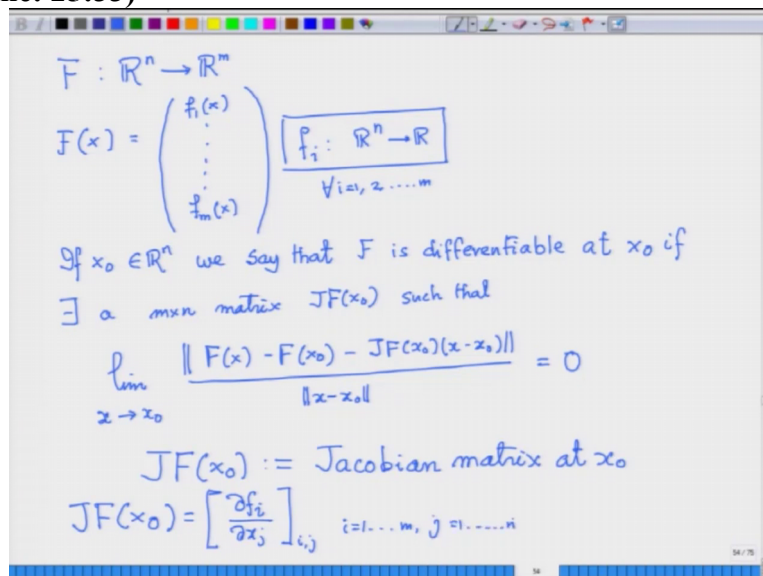 F : ℝⁿ → ℝᵐ
F(x) = ( f₁(x) ⋮ fₘ(x) ) fᵢ : ℝⁿ → ℝ
∀ i=1, 2 .... m
If x₀ ∈ ℝⁿ we say that F is differentiable at x₀ if
∃ a m×n matrix JF(x₀) such that
lim x → x₀ ‖ F(x) - F(x₀) - JF(x₀)(x-x₀)‖ / ‖x-x₀‖ = 0
JF(x₀) := Jacobian matrix at x₀
JF(x₀) = [∂fᵢ/∂xⱼ]ᵢ,ⱼ i=1...m, j=1.....n
54 / 75
54